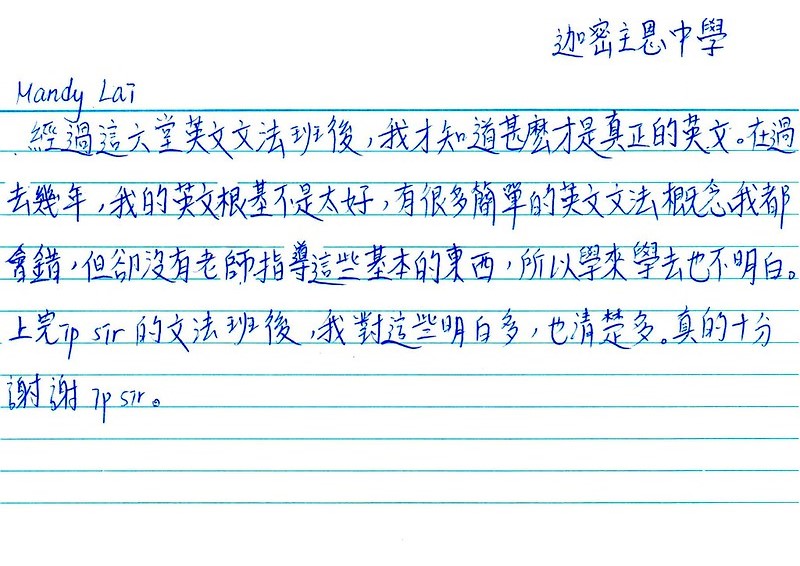 迦密主恩中學
Mandy Lai
經過這六堂英文文法班後，我才知道甚麼才是真正的英文。在過
去幾年，我的英文根基不是太好，有很多簡單的英文文法概念我都
會錯，但卻沒有老師指導這些基本的東西，所以學來學去也不明白。
上完 Ip sir 的文法班後，我對這些明白多，也清楚多。真的十分
謝謝 Ip sir。